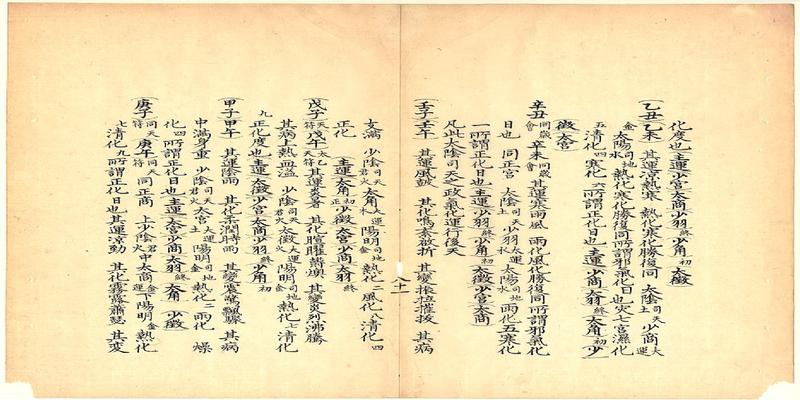 化度也主運少宮太商少羽終少角初太徵
乙丑乙未 其運涼熱寒 熱化寒化勝復同 太陰司天土少商大運
金太陽司地水熱化寒化勝復同所謂邪氣化日也灾七宮濕化
五清化四寒化六所謂正化日也主運少商太羽終太角初少
徵太宮
辛丑同歲會辛未同歲會其運寒雨風 雨化風化勝復同所謂邪氣化
日也 同正宮 太陰司天土少羽大運水太陽司地水雨化五寒化
一所謂正化日也主運少羽終少角初太徵少宮太商
凡此太陰司天之政氣化運行後天
壬子壬午 其運風鼓 其化鳴紊啟折 其變振拉摧拔 其病
支滿 少陰司天君火太角大運木陽明司地金熱化二風化八清化四
正化 主運太角初正少徵太宮少商太羽終
戊子天符戊午太乙天符其運炎暑 其化暄曜鬱燠 其變炎烈沸騰
其病上熱血溢 少陰司天君火太徵大運火陽明司地金熱化七清化
九正化度也主運太徵少宮太商少羽終少角初
甲子甲午 其運陰雨 其化柔潤時雨 其變震驚飄驟 其病
中滿身重 少陰司天君火太宮大運土陽明司地金熱化二雨化 燥
化四所謂正化日也主運太宮少商太羽終太角 少徵
庚子同天符庚午同天符 同正商 上少陰君火中太商金運下陽明金熱化
七清化九所謂正化日也其運涼勁 其化霧露蕭瑟 其变